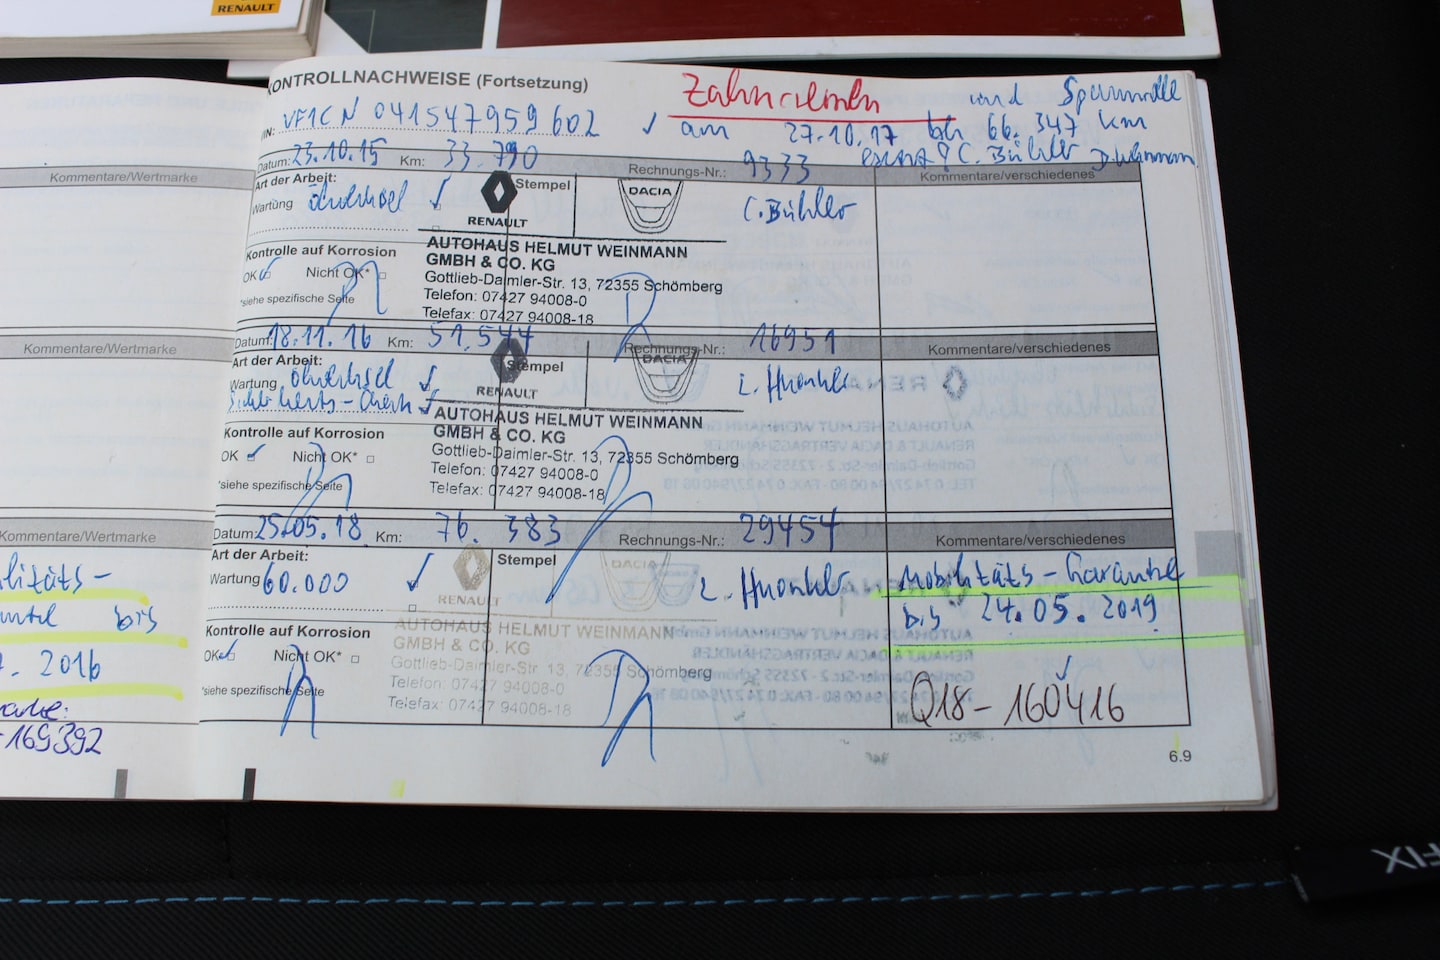 RENAULT
KONTROLLNACHWEISE (Fortsetzung)
Zahnriemen und Spannrolle
VIN: VF1CN041547959602 ✓ am 27.10.17 bei 66.347 km
C. Bühler
Datum: 23.10.15 Km: 33.790 Rechnungs-Nr.: 9333 Kommentare/verschiedenes
Kommentare/Wertmarke
Art der Arbeit:
Wartung Ölwechsel ✓ Stempel DACIA C. Bühler
RENAULT
Kontrolle auf Korrosion
OK ✓ Nicht OK*
*siehe spezifische Seite
AUTOHAUS HELMUT WEINMANN
GMBH & CO. KG
Gottlieb-Daimler-Str. 13, 72355 Schömberg
Telefon: 07427 94008-0
Telefax: 07427 94008-18
Datum: 18.11.16 Km: 51.544 Rechnungs-Nr.: 16951 Kommentare/verschiedenes
Kommentare/Wertmarke
Art der Arbeit:
Wartung Ölwechsel ✓ Stempel DACIA
Sicherheits-Check ✓
RENAULT
Kontrolle auf Korrosion
OK ✓ Nicht OK*
*siehe spezifische Seite
AUTOHAUS HELMUT WEINMANN
GMBH & CO. KG
Gottlieb-Daimler-Str. 13, 72355 Schömberg
Telefon: 07427 94008-0
Telefax: 07427 94008-18
Datum: 25.05.18 Km: 76.383 Rechnungs-Nr.: 29454 Kommentare/verschiedenes
Kommentare/Wertmarke
Art der Arbeit:
Wartung 60.000 ✓ Stempel DACIA
RENAULT
Kontrolle auf Korrosion
OK ✓ Nicht OK*
*siehe spezifische Seite
AUTOHAUS HELMUT WEINMANN
GMBH & CO. KG
Gottlieb-Daimler-Str. 13, 72355 Schömberg
Telefon: 07427 94008-0
Telefax: 07427 94008-18
Mobilitäts-Garantie
bis 24.05.2019
Q18-160416
litäts-
bis
. 2016
-169392
6.9
FIX